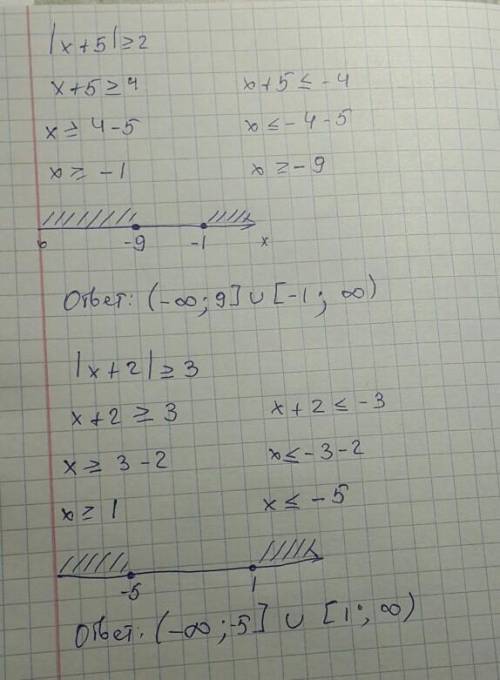 |x+5|≥2
x+5≥4 x+5≤-4
x≥4-5 x≤-4-5
x≥-1 x≥-9
-9 -1 x
Ответ: (-∞; 9] ∪ [-1; ∞)
|x+2|≥3
x+2≥3 x+2≤-3
x≥3-2 x≤-3-2
x≥1 x≤-5
-5 1
Ответ: (-∞; -5] ∪ [1; ∞)